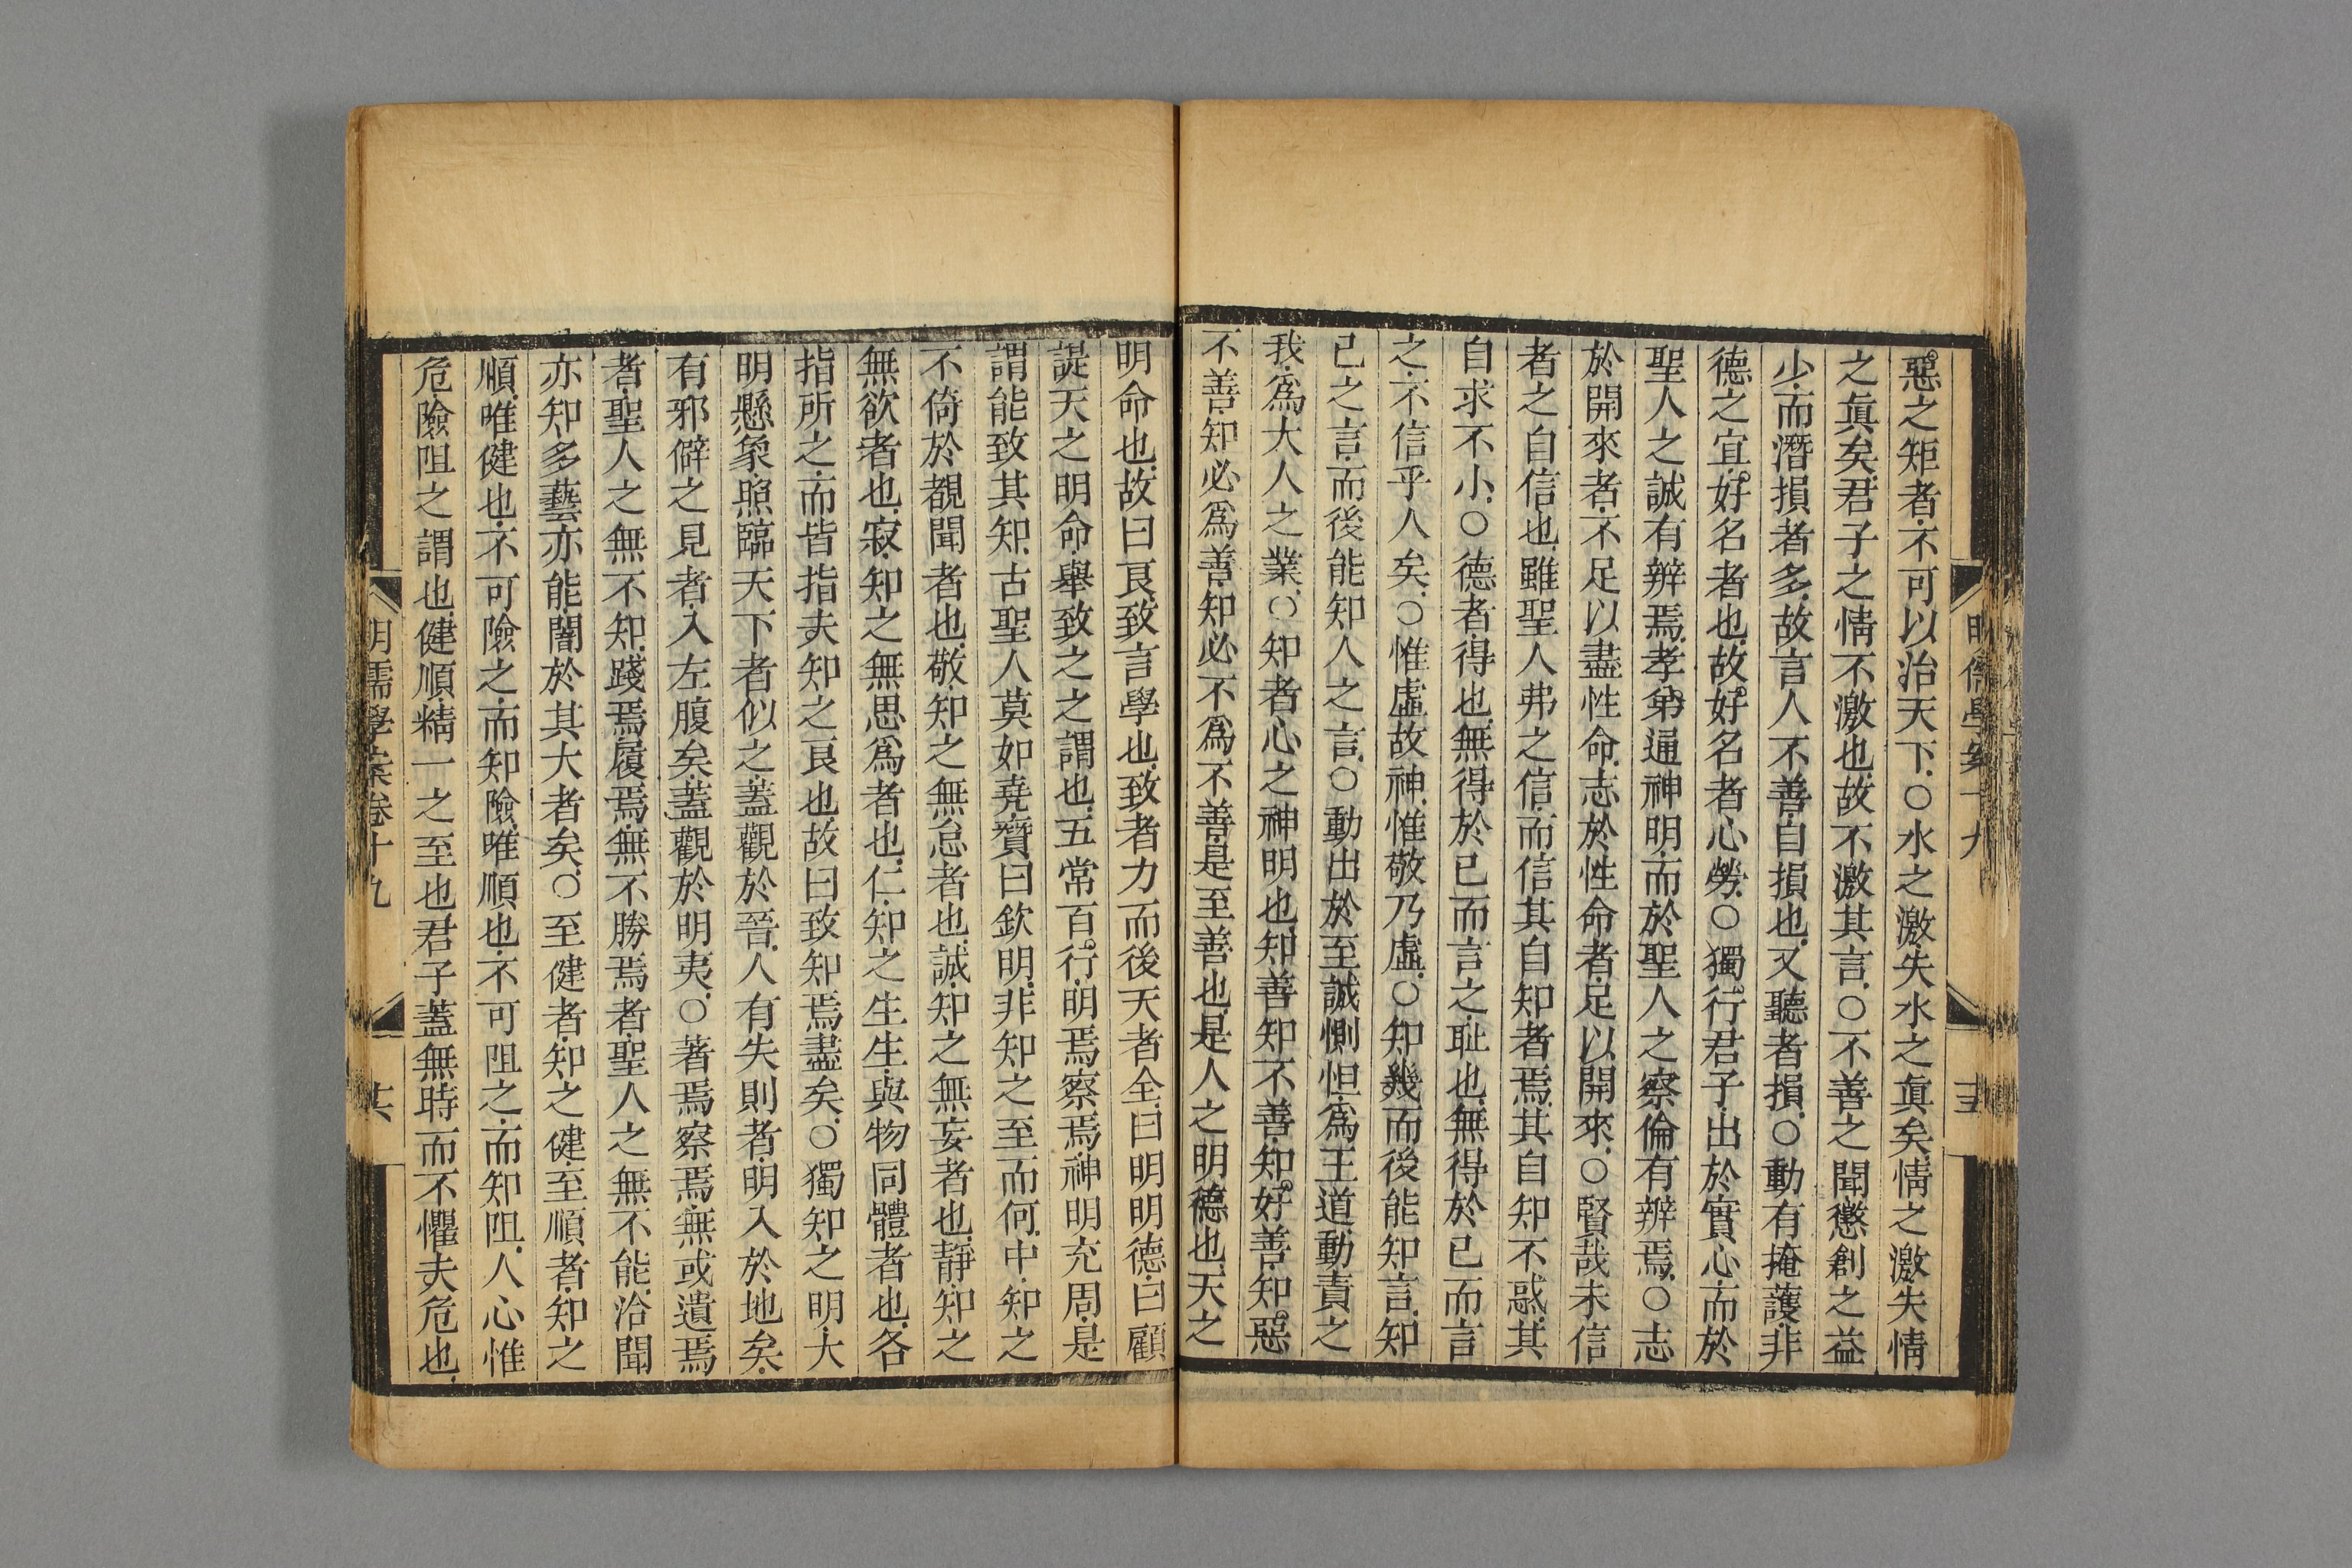 惡之矩者不可以治天下○水之激失水之眞矣情之激失情
之眞矣君子之情不激也故不激其言○不善之聞懲創之益
少而潛損者多故言人不善自損也又聽者損○動有掩護非
德之宜好名者也故好名者心勞○獨行君子出於實心而於
聖人之誠有辨焉孝弟通神明而於聖人之察倫有辨焉○志
於開來者不足以盡性命志於性命者足以開來○賢哉未信
者之自信也雖聖人弗之信而信其自知者焉其自知不惑其
自求不小○德者得也無得於已而言之耻也無得於已而言
之不信乎人矣○惟虛故神惟敬乃虛○知幾而後能知言知
已之言而後能知人之言○動出於至誠惻怛爲王道動責之
我爲大人之業○知者心之神明也知善知不善知好善知惡
不善知必爲善知必不爲不善是至善也是人之明德也天之
明命也故曰良致言學也致者力而後天者全曰明明德曰顧
諟天之明命舉致之之謂也五常百行明焉察焉神明充周是
謂能致其知古聖人莫如堯贊曰欽明非知之至而何中知之
不倚於覩聞者也敬知之無怠者也誠知之無妄者也靜知之
無欲者也寂知之無思爲者也仁知之生生與物同體者也各
指所之而皆指夫知之良也故曰致知焉盡矣○獨知之明大
明懸象照臨天下者似之蓋觀於晉人有失則者明入於地矣
有邪僻之見者入左腹矣蓋觀於明夷○著焉察焉無或遺焉
者聖人之無不知踐焉履焉無不勝焉者聖人之無不能洽聞
亦知多藝亦能闇於其大者矣○至健者知之健至順者知之
順唯健也不可險之而知險唯順也不可阻之而知阻人心惟
危險阻之謂也健順精一之至也君子蓋無時而不懼夫危也
明儒學案卷十九